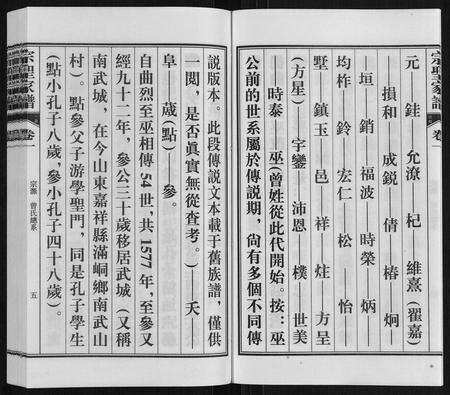 宗聖家譜
卷一
元——銈——允潦——杞——維熹(翟嘉)
——損和——成銳——倩——椿——炯——
——垣——銷——福波——時榮——炳——
均柞——鈴——宏仁——松——怡——
墅——鎮玉——邑——祥——炷——方呈
(方星)——字鑾——沛恩——樸——世美
——時泰——巫(曾姓從此代開始。按：巫
公前的世系屬於傳說期，尙有多個不同傳
說版本。此段傳說文本載于舊族譜，僅供
一閱，是否眞實無從查考。)——夭——
阜——蒧(點)——參。
自曲烈至巫相傳54世，共1577年，至參又
經九十二年，參公三十歲移居武城(又稱
南武城，在今山東嘉祥縣滿硐鄉南武山
村)。點參父子游學聖門，同是孔子學生
(點小孔子八歲，參小孔子四十八歲)。
宗聖家譜
卷一
宗源 曾氏總系
五